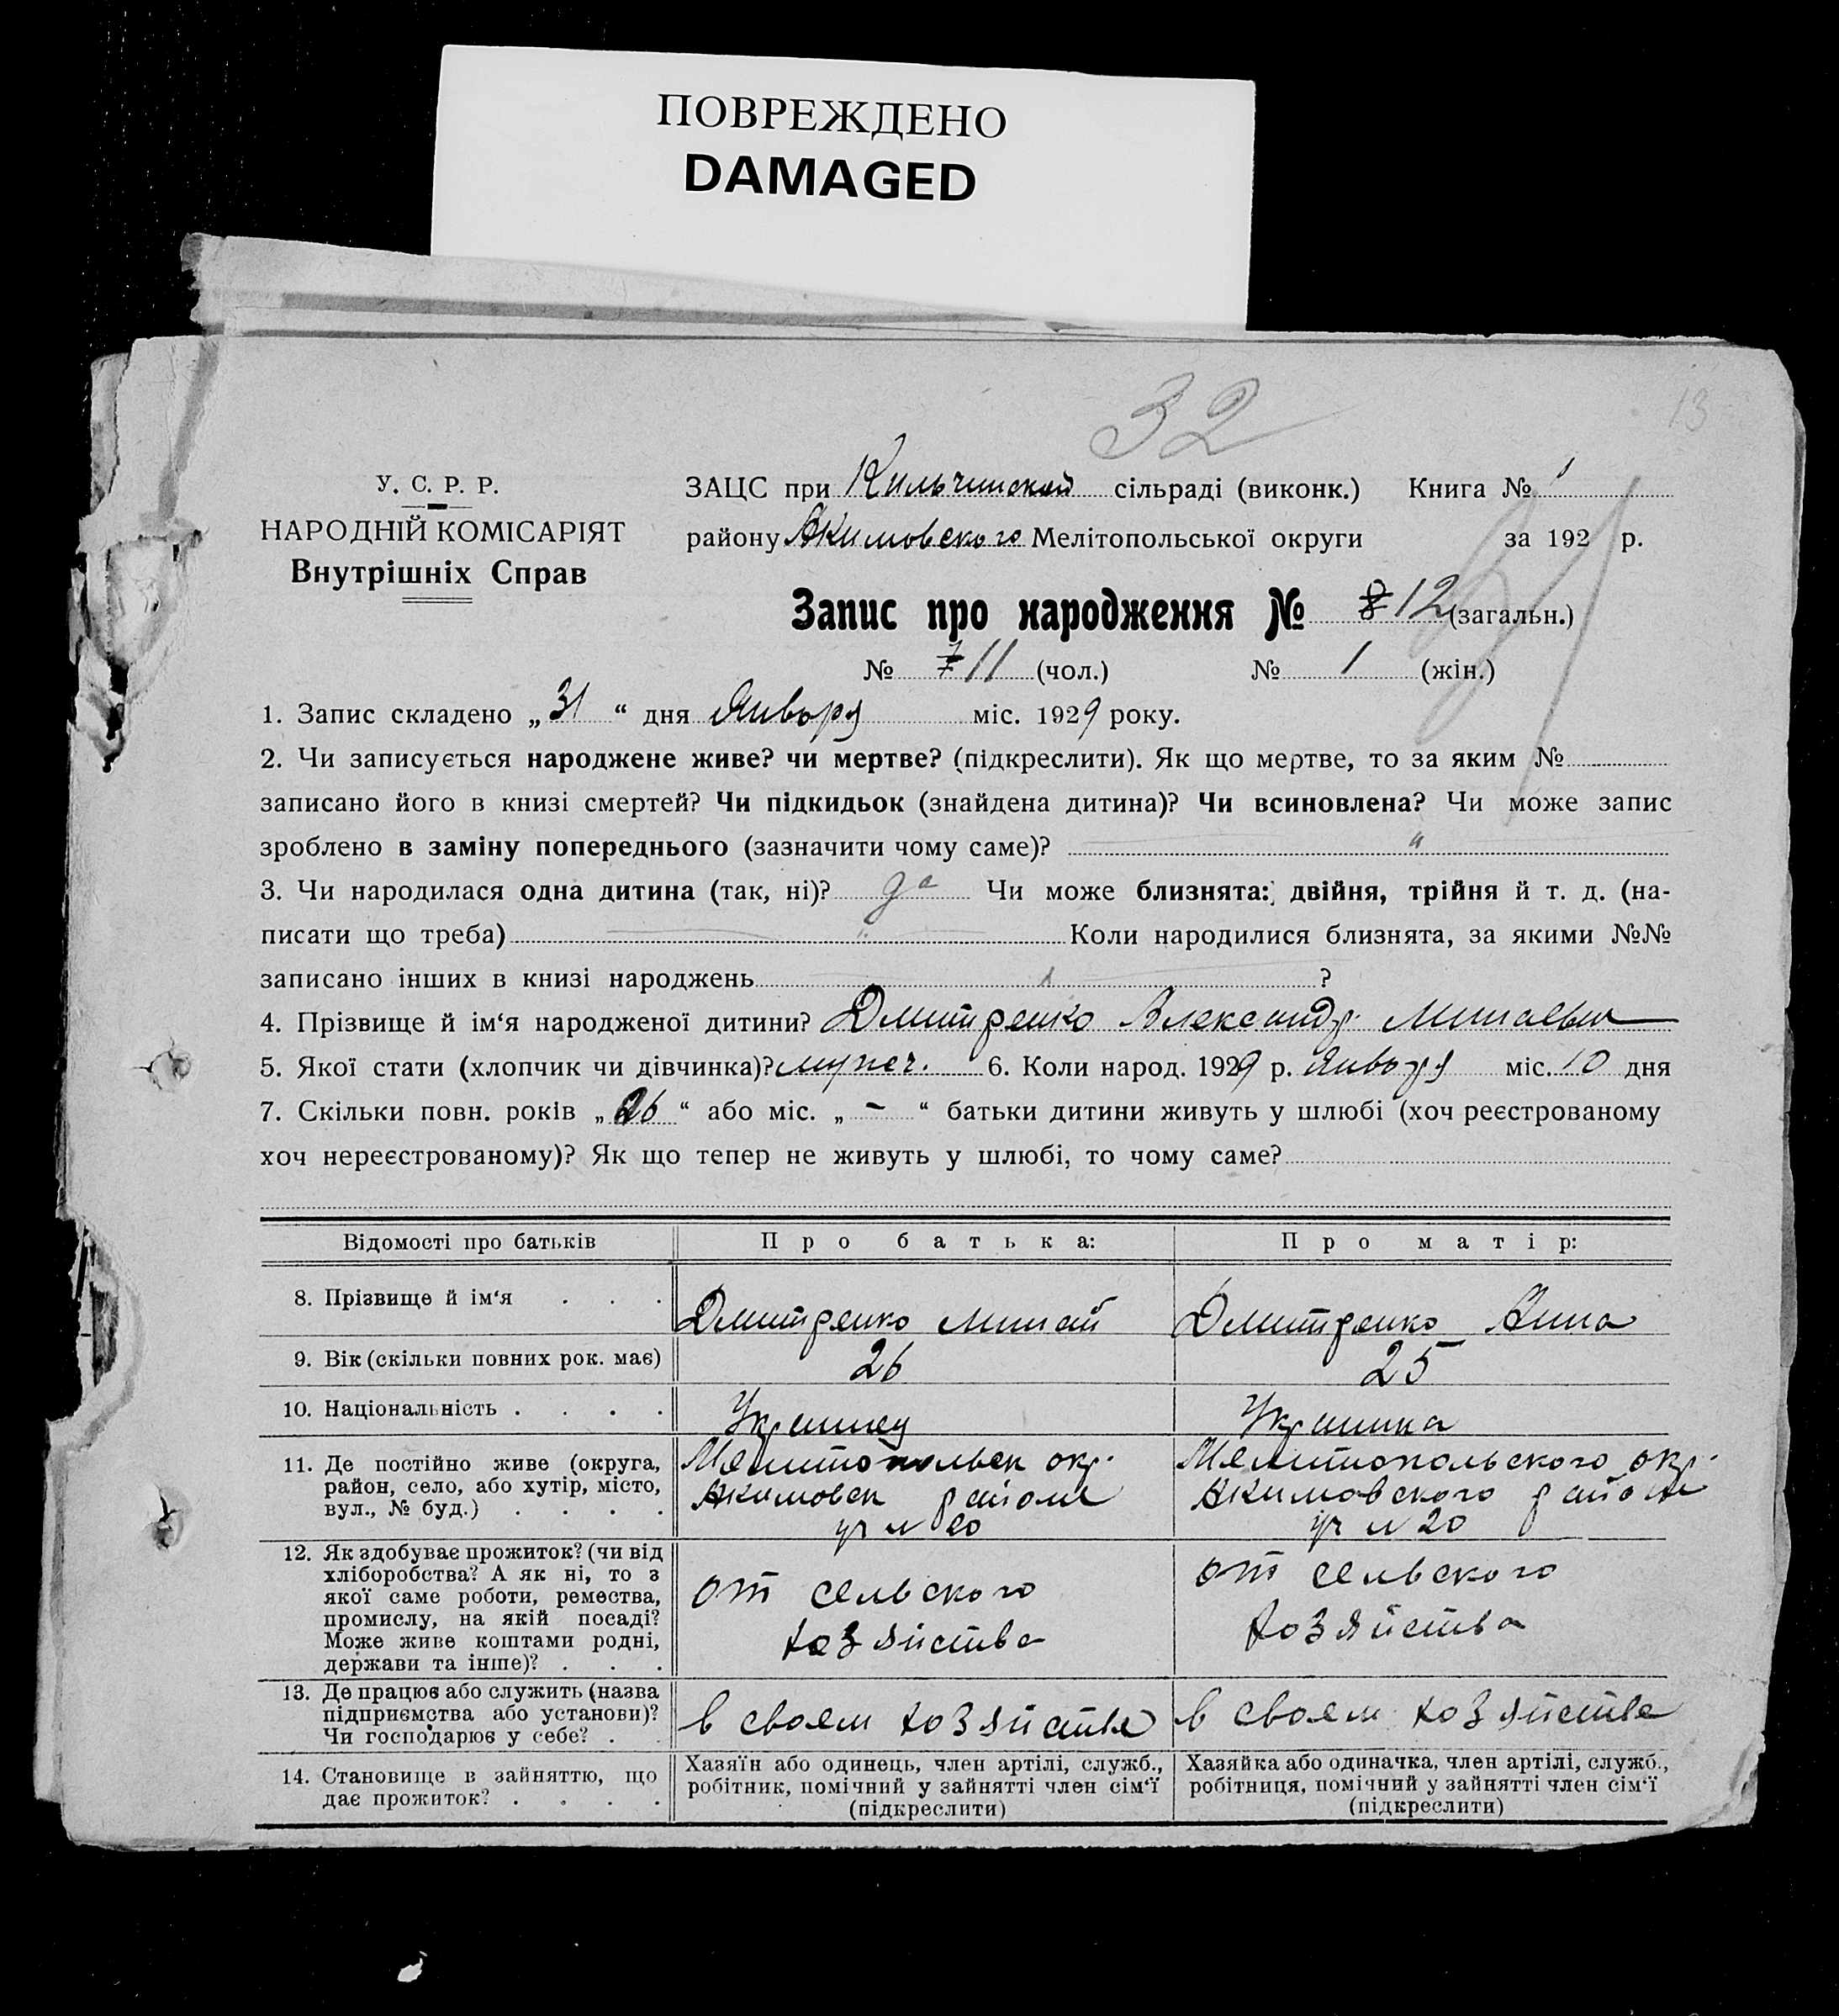 ПОВРЕЖДЕНО
DAMAGED
32
13
У. С. Р. Р.
НАРОДНІЙ КОМІСАРІЯТ
Внутрішніх Справ
ЗАЦС при Кильчинской сільраді (виконк.) Книга № 1
району Акимовского Мелітопольської округи за 192 р.
Запис про народження № 8 12 (загальн.)
№ 7 11 (чол.) № 1 (жін.)
1. Запис складено „31“ дня Января міс. 1929 року.
2. Чи записується народжене живе? чи мертве? (підкреслити). Як що мертве, то за яким №
записано його в книзі смертей? Чи підкидьок (знайдена дитина)? Чи всиновлена? Чи може запис
зроблено в заміну попереднього (зазначити чому саме)? "
3. Чи народилася одна дитина (так, ні)? да Чи може близнята: двійня, трійня й т. д. (на-
писати що треба) Коли народилися близнята, за якими №№
записано інших в книзі народжень ?
4. Прізвище й ім‘я народженої дитини? Дмитренко Александр
5. Якої стати (хлопчик чи дівчинка)? мужеч. 6. Коли народ. 1929 р. Января міс. 10 дня
7. Скільки повн. років „26“ або міс. „-“ батьки дитини живуть у шлюбі (хоч реєстрованому
хоч нереєстрованому)? Як що тепер не живуть у шлюбі, то чому саме?
Відомості про батьків Про батька: Про матір:
8. Прізвище й ім‘я . . . Дмитренко Дмитренко Анна
9. Вік (скільки повних рок. має) 26 25
10. Національність . . . . Украинец Украинка
11. Де постійно живе (округа, Мелитопольск окр. Мелитопольского окр.
район, село, або хутір, місто, Акимовск района Акимовского района
вул., № буд.) . . . . уч N 20 уч N 20
12. Як здобуває прожиток? (чи від
хліборобства? А як ні, то з от сельского от сельского
якої саме роботи, ремества,
промислу, на якій посаді? хозяйства хозяйства
Може живе коштами родні,
держави та інше)? . . .
13. Де працює або служить (назва
підприємства або установи)? в своем хозяйстве в своем хозяйстве
Чи господарює у себе? . .
14. Становище в зайняттю, що
дає прожиток? . . . .
Хазяїн або одинець, член артілі, служб.,
робітник, помічний у зайнятті член сім‘ї
(підкреслити)
Хазяйка або одиначка, член артілі, служб.,
робітниця, помічний у зайнятті член сім‘ї
(підкреслити)